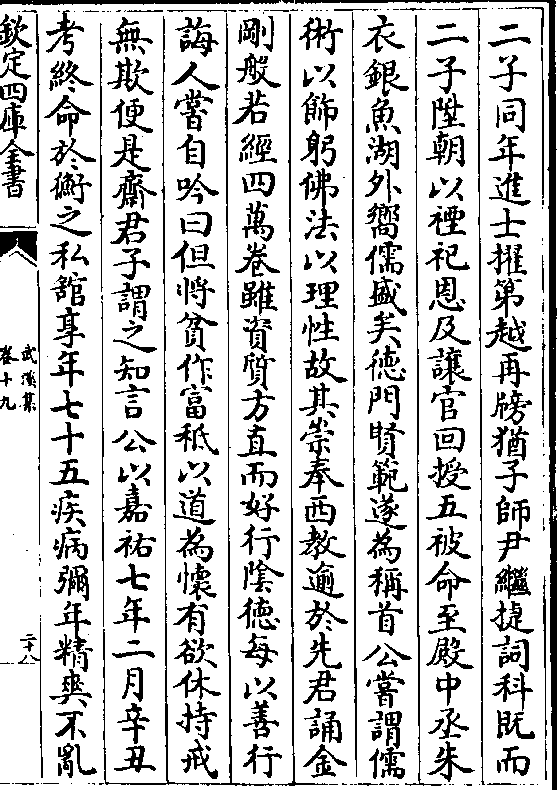 二子同年進士擢第越再牓猶子師尹繼捷詞科既而
二子陞朝以禋祀恩及讓官回授五被命至殿中丞朱
衣銀魚湖外嚮儒盛矣德門賢範遂為稱首公嘗謂儒
術以飾躬佛法以理性故其崇奉西教逾於先君誦金
剛般若經四萬卷雖資質方直而好行陰德每以善行
誨人嘗自吟曰但將貧作富秪以道為懷有欲休持戒
無欺便是齋君子謂之知言公以嘉祐七年二月辛丑
考終命於衡之私舘享年七十五疾病彌年精爽不亂
欽定四庫全書
武溪集
卷十九
二十八